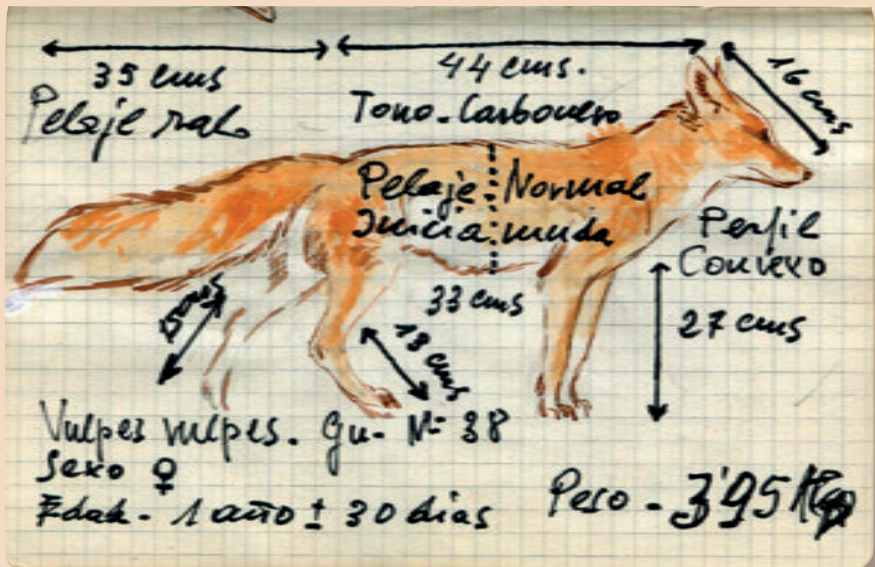 35 cms
44 cms.
16 cms
Pelaje ralo
Tono-Carbonero
Pelaje Normal
Inicia muda
Perfil
Convexo
33 cms
27 cms
13 cms
Vulpes vulpes. Gu- Nº 38
Sexo ♀
Edad- 1 año ± 30 dias
Peso - 3'95 Kg